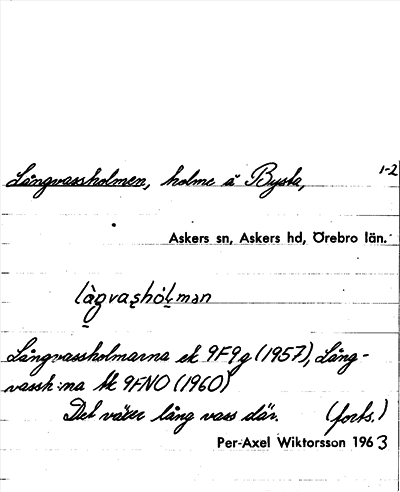 1-2
Långvassholmen, holme å Bysta,
Askers sn, Askers hd, Örebro län.
làgvas̱hóḻmən
Långvassholmarna ek 9F9g (1957), Lång-
vassh:na bk 9FNO (1960)
Det växer lång vass där. (forts.)
Per-Axel Wiktorsson 1963